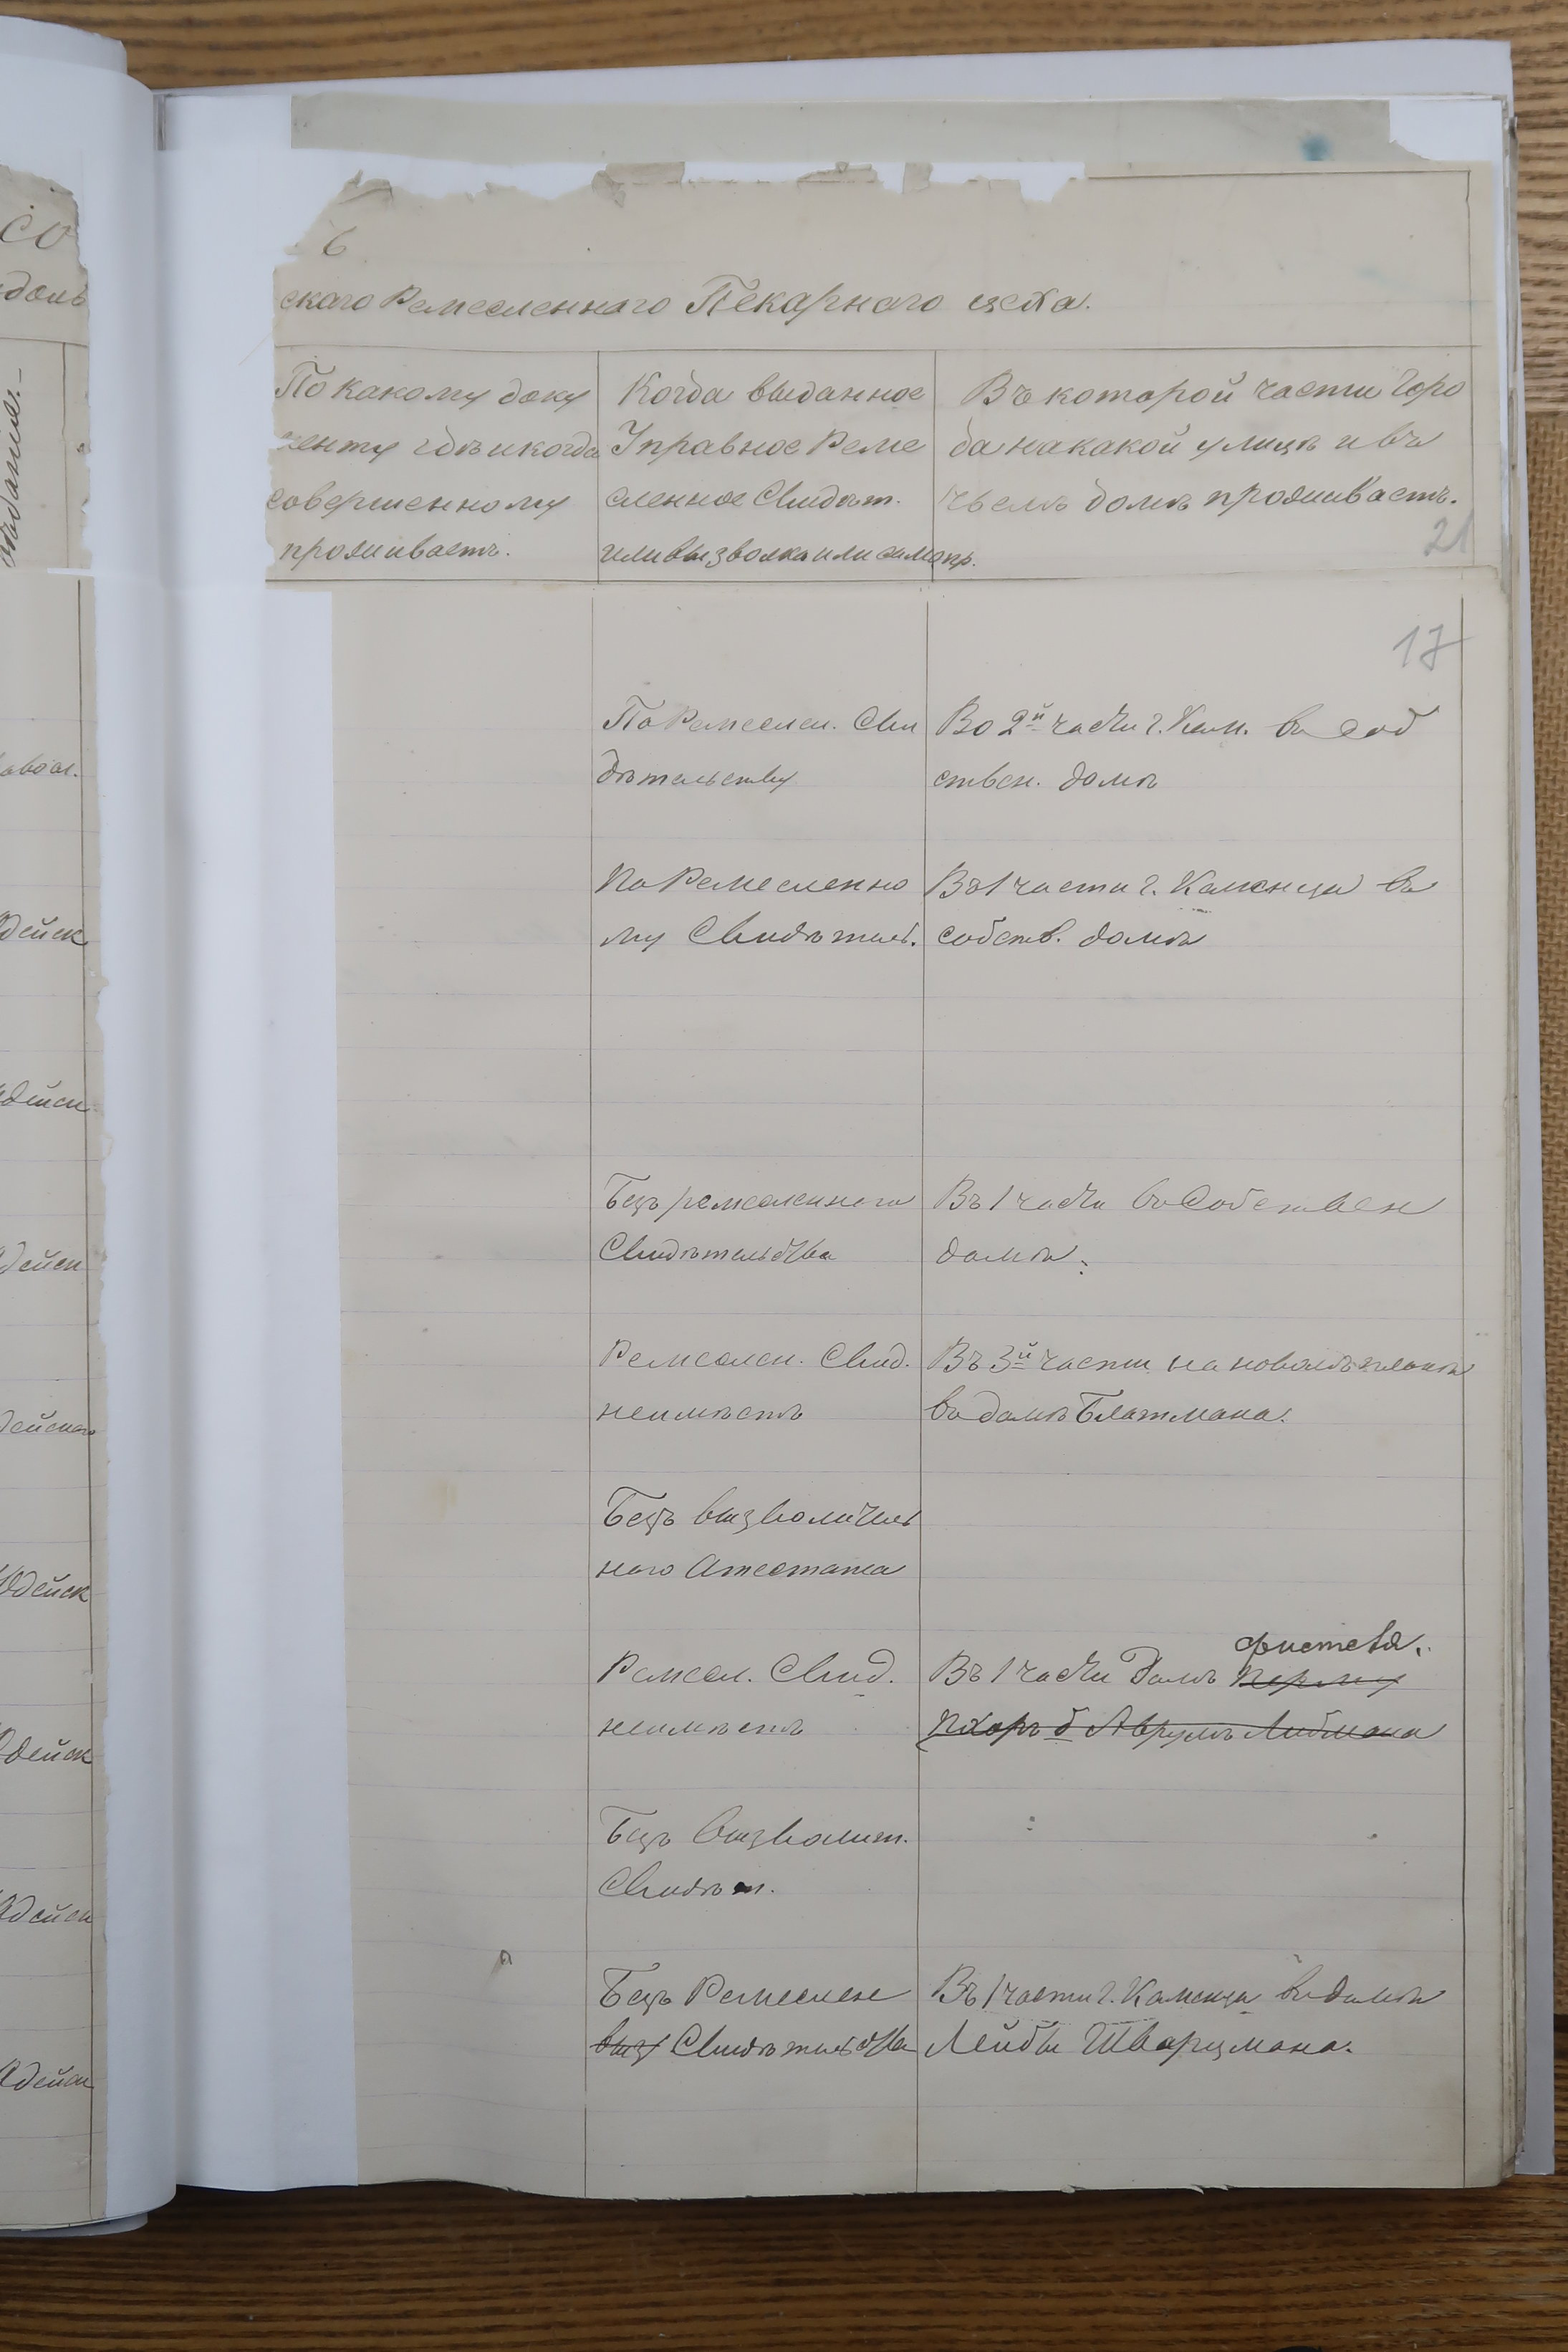 со
6
скаго Ремесленнаго Пекарнаго цеха.
По какому доку
менту гдѣ и когда
совершенному
проживаетъ.
Когда выданное
Управное Реме
сленное Свидѣт.
или вызволка или
Въ которой части Горо
да на какой улицѣ и въ
чьемъ домѣ проживаетъ.
21
17
По Ремеслен. Сви
дѣтельству
Во 2й части г. Кам. въ соб
ствен. домѣ
По Ремесленно
му Свидѣтель.
Въ 1 части г. Каменца въ
собств. домѣ
Безъ ремесленнаго
Свидѣтельства
Въ 1 части въ Собствен
домѣ.
Ремеслен. Свид.
неимѣетъ
Въ 3й части на новомъ планѣ
въ домѣ Блатмана.
Безъ вызволитель
наго Атестата
Ремесл. Свид.
неимѣетъ
фистеля.
Въ 1 части Домъ
Аврумъ Либмана
Безъ Вызволит.
Свидѣт.
Безъ Ремеслен
выз Свидѣтельства
Въ 1 части г. Каменца въ домѣ
Лейбы Шварцмана.
авос.
дейск
дейск
дейск
дейскаго
дейск
дейск
дейск
дейск